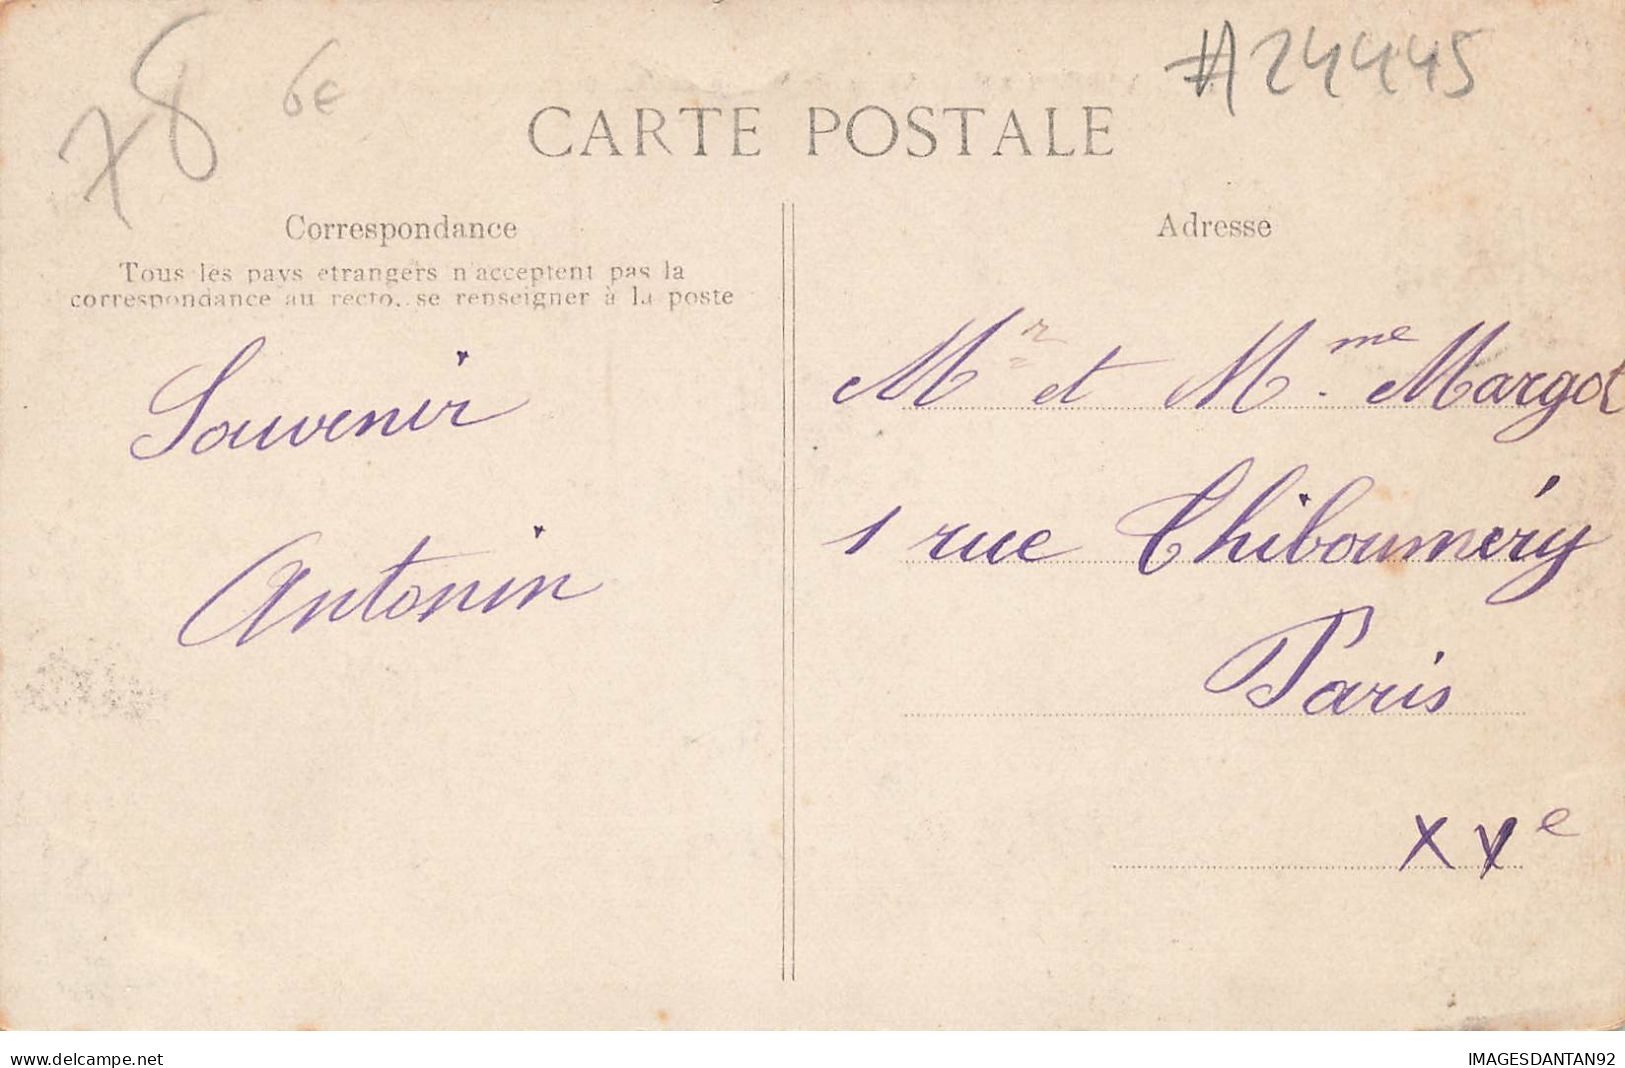 78
6€
#24445
CARTE POSTALE
Correspondance
Tous les pays etrangers n'acceptent pas la
correspondance au recto, se renseigner à la poste
Souvenir
Antonin
Adresse
Mr et Mme Margot
1 rue Thiboumery
Paris
XVe
www.delcampe.net
IMAGESDANTAN92